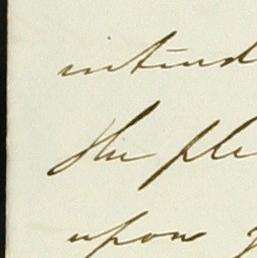 intend
the ple
upon